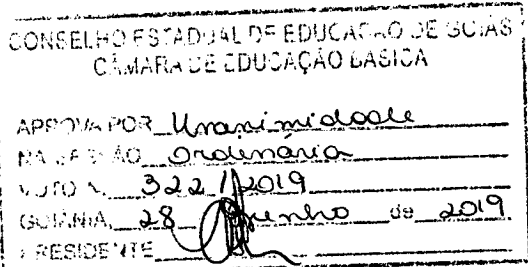 CONSELHO ESTADUAL DE EDUCAÇÃO DE GOIÁS
CÂMARA DE EDUCAÇÃO BÁSICA
APROVA POR Unanimidade
NA SESSÃO Ordinária
VOTO N. 322/2019
GOIÂNIA, 28 Junho de 2019
PRESIDENTE